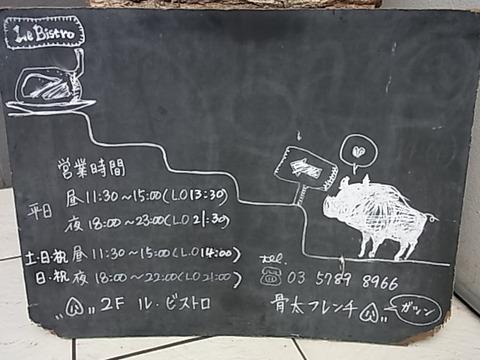 Le Bistro
営業時間
平日 昼 11:30~15:00(L.O 13:30)
夜 18:00~23:00(L.O 21:30)
土・日・祝 昼 11:30~15:00(L.O 14:00)
日・祝 夜 18:00~22:00(L.O 21:00)
tel.
03 5789 8966
2F ル・ビストロ
骨太フレンチ ガツン